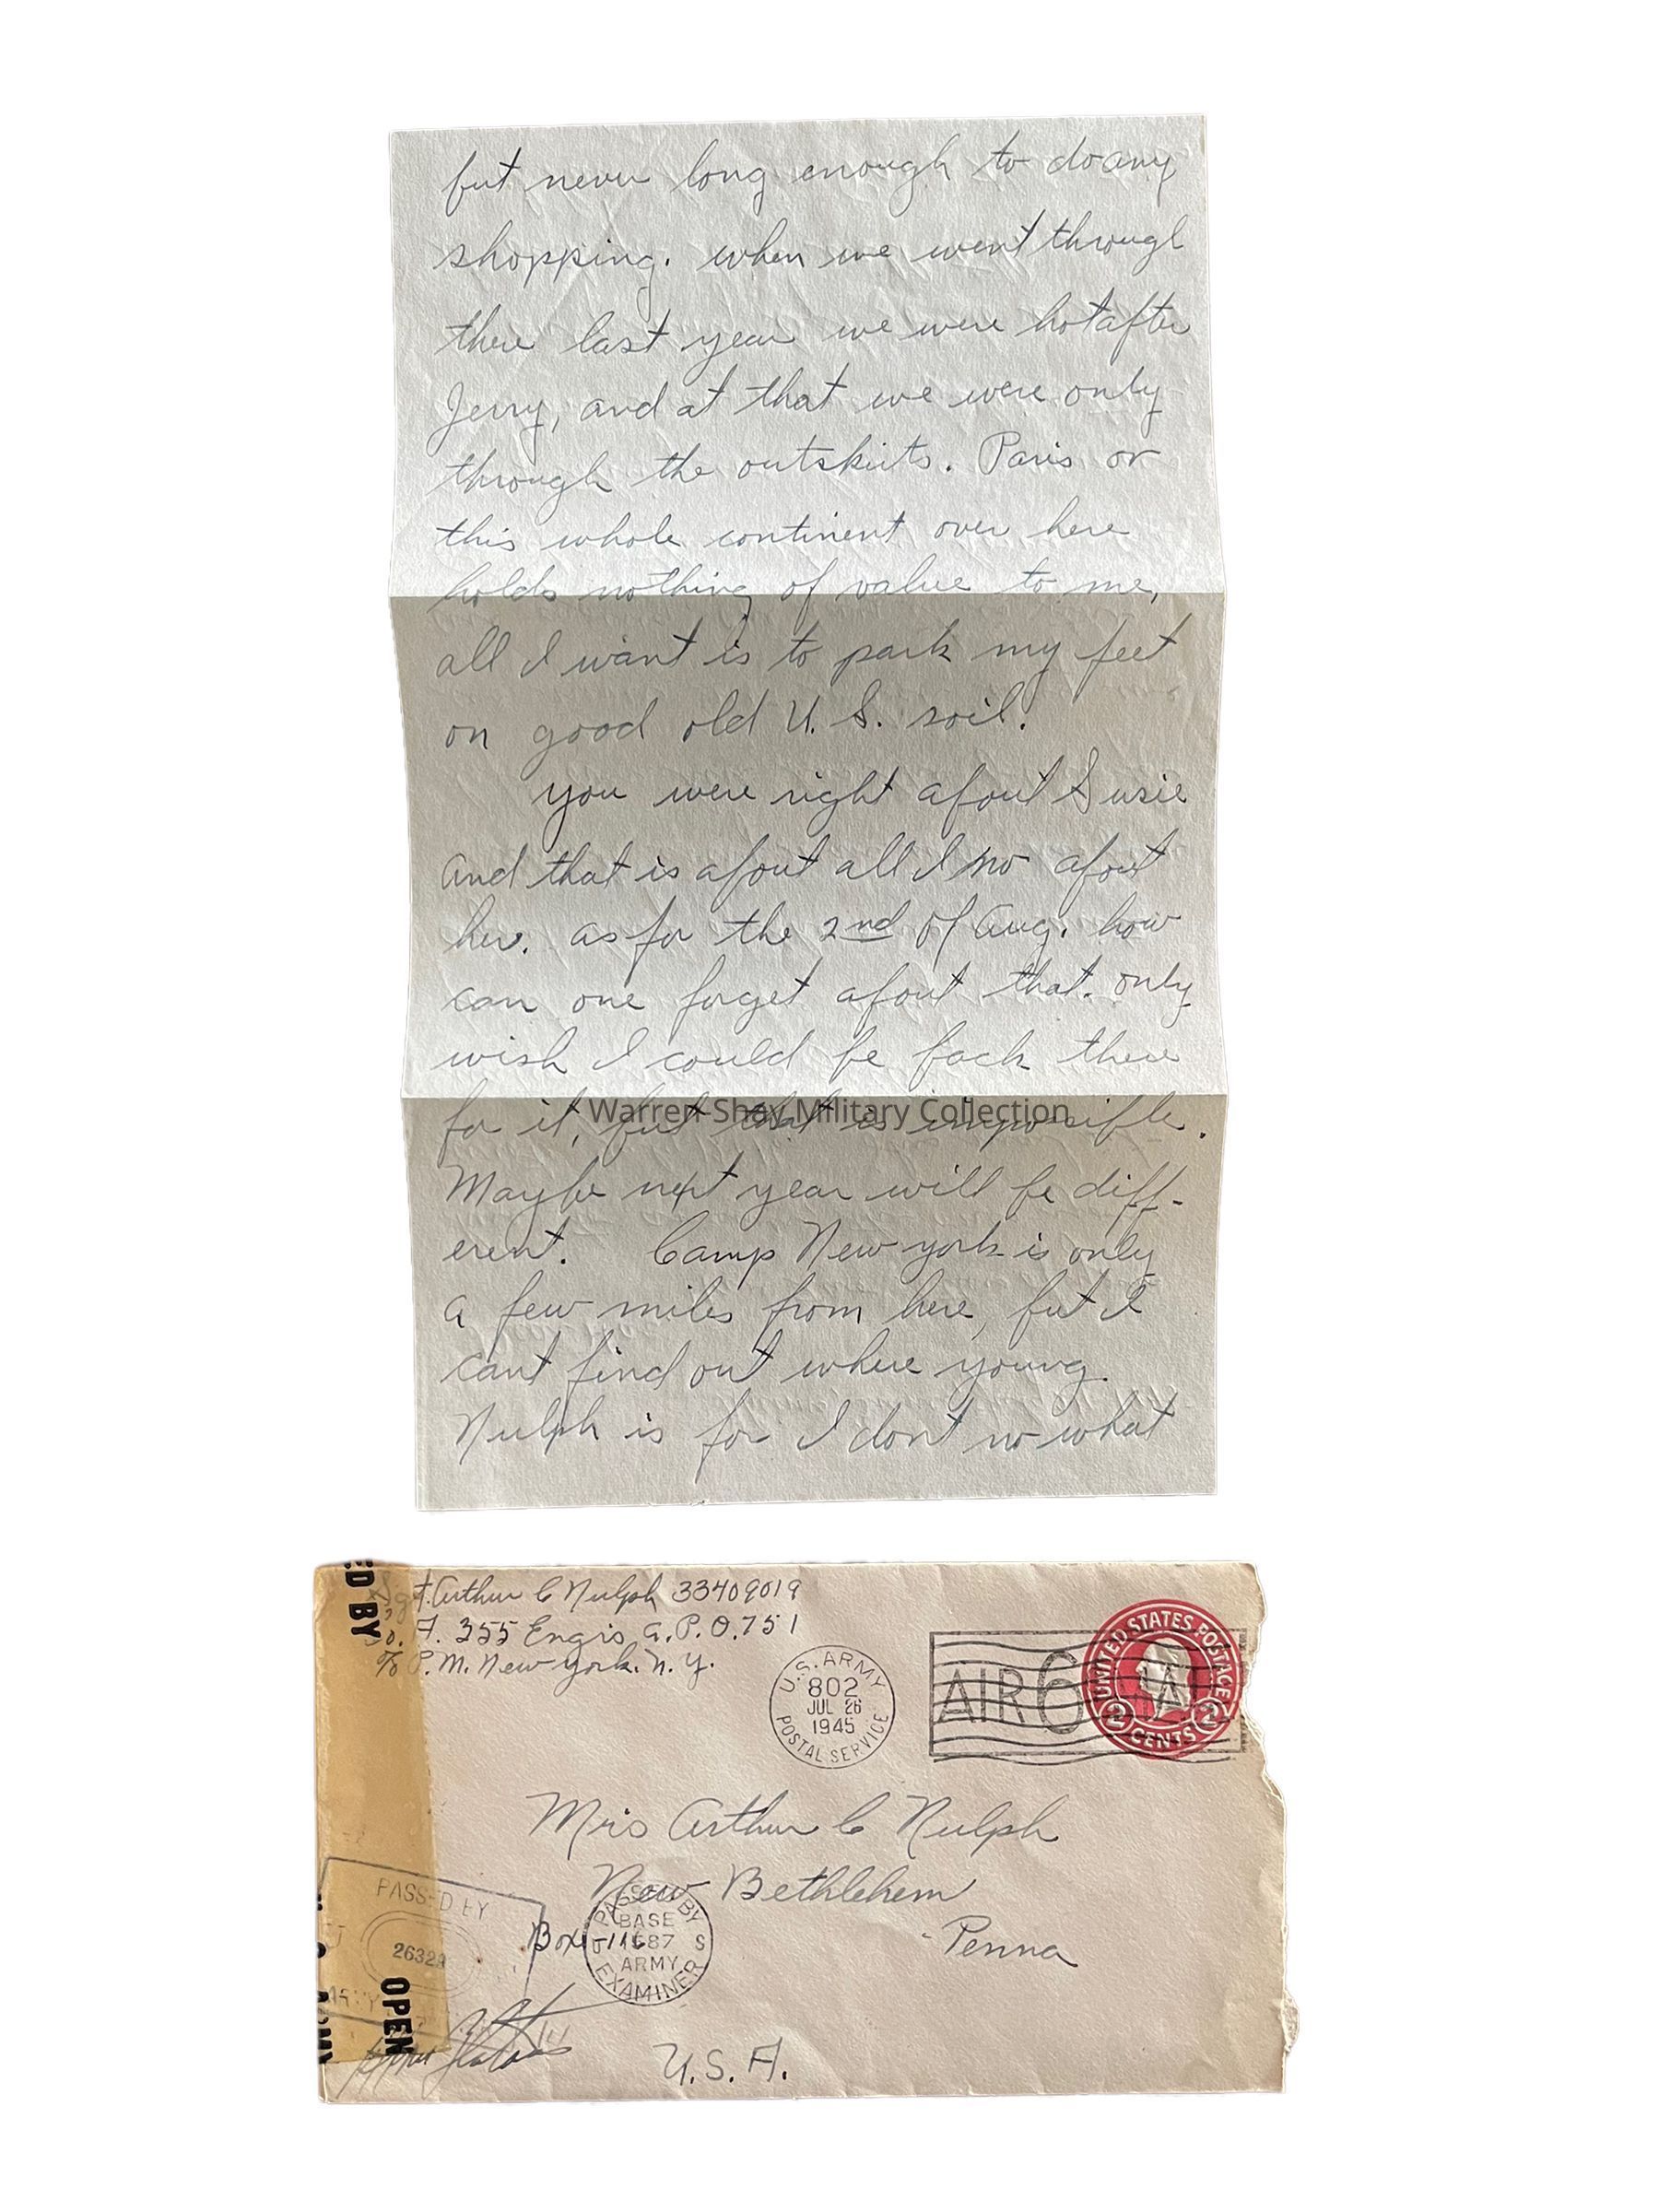 but never long enough to do any
shopping. when we went through
there last year we were hot after
Jerry, and at that we were only
through the outskirts. Paris or
this whole continent over here
holds nothing of value to me,
all I want is to park my feet
on good old U.S. soil.
you were right about Susie
and that is about all I no about
her. as for the 2nd of Aug. how
can one forget about that. only
wish I could be back there
for it, but that is impossible.
Warren Shay Military Collection
Maybe next year will be diff-
erent. Camp New york is only
a few miles from here, but I
cant find out where young
Nulph is for I dont no what
ED BY
Sgt. Arthur C Nulph 33409019
Co. A. 355 Engrs A.P.O. 751
c/o P.M. New york. N.Y.
U.S. ARMY
802
JUL 26
1945
POSTAL SERVICE
AIR 6
UNITED STATES POSTAGE
2 CENTS 2
Mrs Arthur C Nulph
New Bethlehem
Box
Penna
U.S.A.
PASSED BY
BASE
ARMY
EXAMINER
PASSED BY
ARMY
OPEN